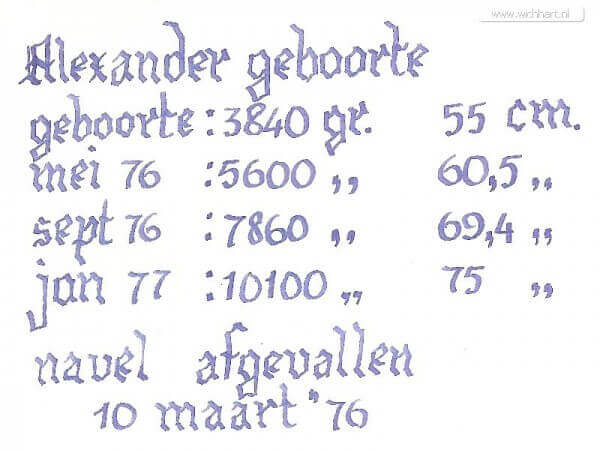 www.wichhart.nl
Alexander geboorte
geboorte : 3840 gr. 55 cm.
mei 76 : 5600 ,, 60,5 ,,
sept 76 : 7860 ,, 69,4 ,,
jan 77 : 10100 ,, 75 ,,
navel afgevallen
10 maart "76